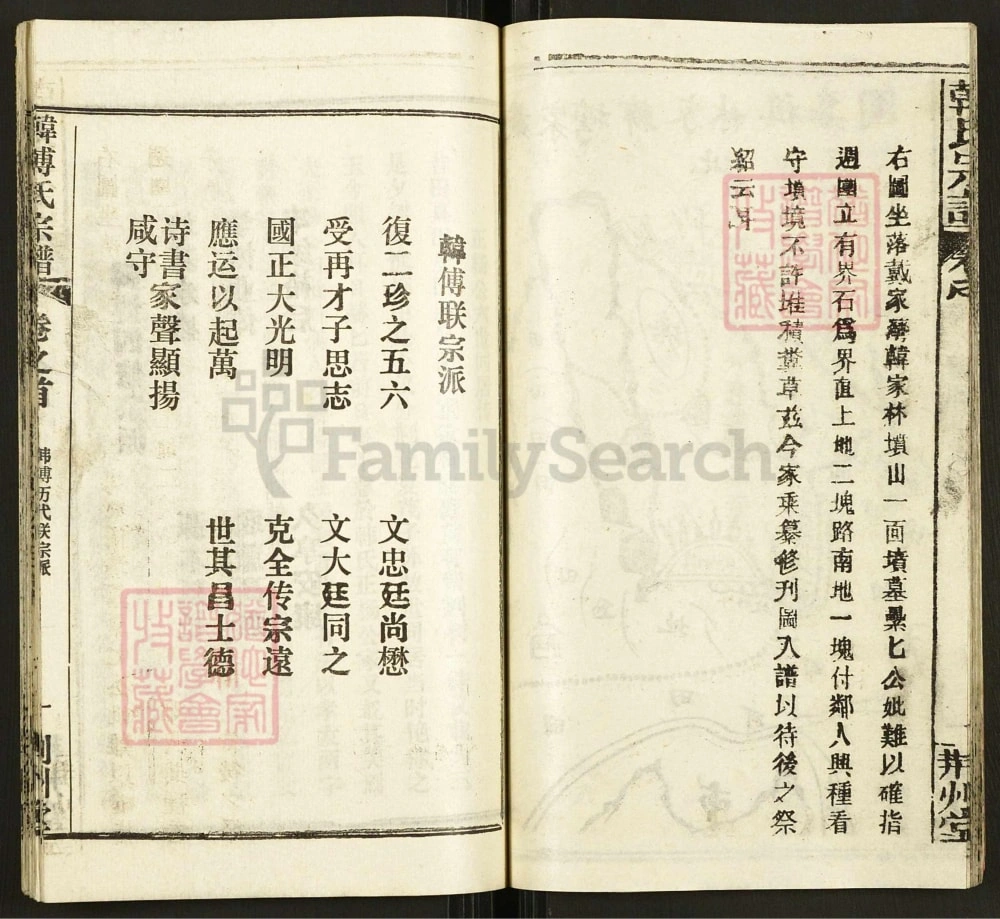 韓氏宗譜
荆州堂
右圖坐落戴家灣韓家林墳山一面墳墓纍匕公妣難以確指
週圍立有界石爲界直上地二塊路南地一塊付鄰人興種看
守墳境不許堆積糞草茲今家乘纂修刋圖入譜以待後之祭
韓傅联宗派
復二珍之五六 文忠廷尚懋
受再才子思志 文大廷同之
國正大光明 克全传宗遠
應运以起萬 世其昌士德
诗書家聲顯揚
咸守
韓傅氏宗譜
卷之首
韩傅历代联宗派
一
荆州堂
FamilySearch